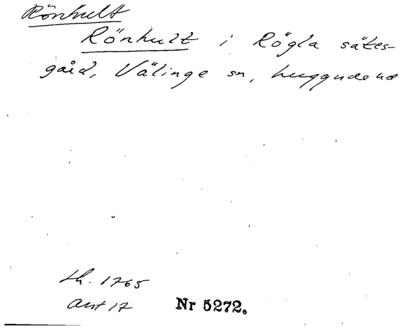 Rönhult
Rönhult i Rögla sätes-
gård, Välinge sn, Luggude hd
Lh. 1765
Avs 17
Nr 5272.